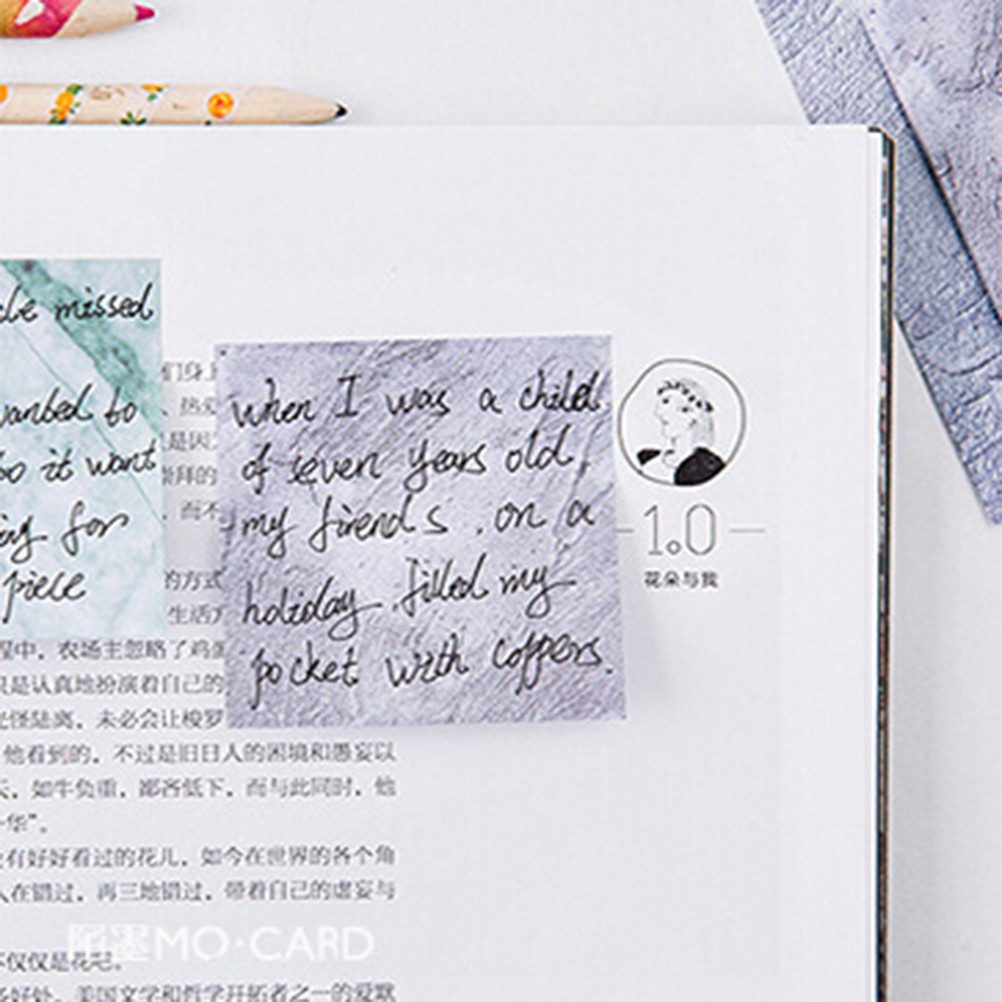 missed
wanted to
it want
for
piece
when I was a child
of seven years old,
my firends, on a
holiday, filled my
pocket with coppers.
1.0
花朵与我
们身上
、热爱
是因为
崇拜的
，而不
的方式
生活方
程中，农场主忽略了鸡蛋
只是认真地扮演着自己的
光怪陆离，未必会让梭罗
他看到的，不过是旧日人的困境和愚妄以
天，如牛负重，鄙吝低下，而与此同时，他
华”。
有好好看过的花儿，如今在世界的各个角
人在错过，再三地错过，带着自己的虚妄与
不仅仅是花吧。
多好处，美国文学和哲学开拓者之一的爱默
陌墨MO·CARD